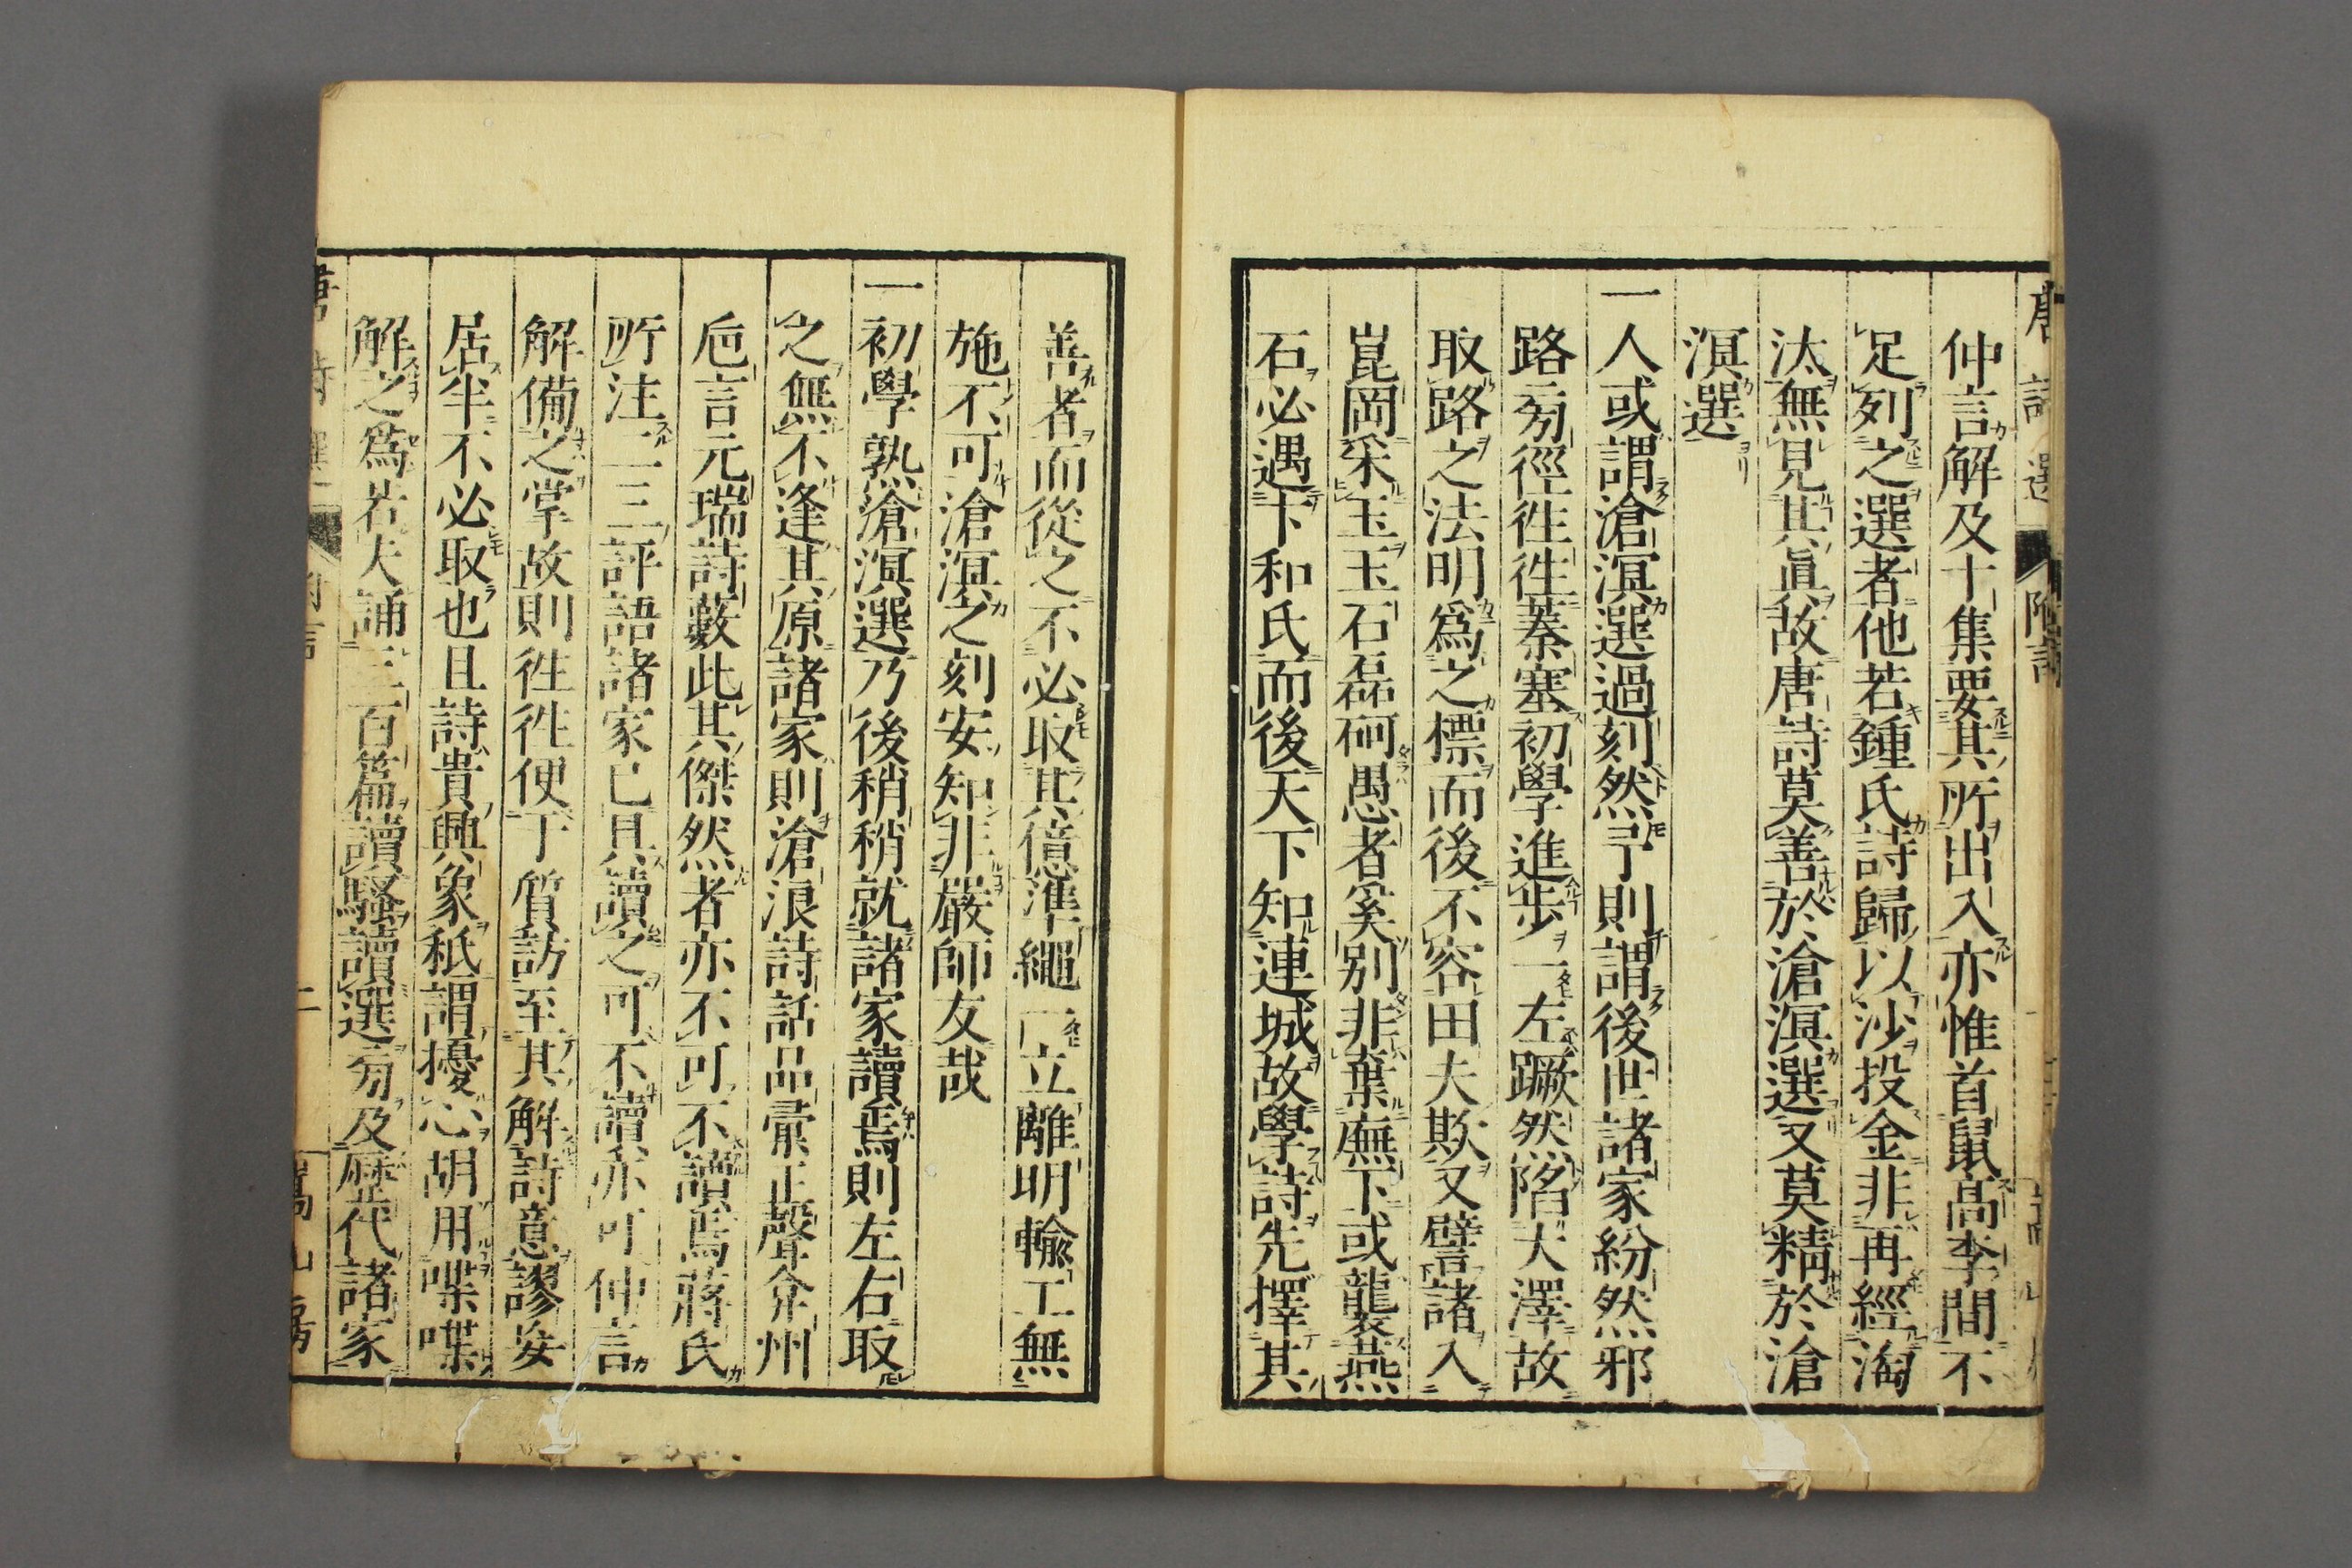 唐詩選 附言
仲言解及十集要其所出入亦惟首鼠高李間不
足列之選者他若鍾氏詩歸以沙投金非再經淘
汰無見其眞故唐詩莫善於滄溟選又莫精於滄
溟選
一人或謂滄溟選過刻然予則謂後世諸家紛然邪
路旁徑徃徃蓁塞初學進步一左蹶然陷大澤故
取路之法明爲之標而後不容田夫欺又譬諸入
崑岡采玉玉石磊砢愚者奚別非棄廡下或襲燕
石必遇卞和氏而後天下知連城故學詩先擇其
善者而從之不必取其億準繩一立離明輸工無
施不可滄溟之刻安知非嚴師友哉
一初學熟滄溟選乃後稍稍就諸家讀焉則左右取
之無不逢其原諸家則滄浪詩話品彙正聲弇州
巵言元瑞詩藪此其傑然者亦不可不讀焉蔣氏
所注一二評語諸家已具讀之可不讀亦可仲言
解備之掌故則徃徃便于質訪至其解詩意謬妄
居半不必取也且詩貴興象秖謂擾心胡用喋喋
解之爲若夫誦三百篇讀騷讀選旁及歷代諸家
唐詩選 附言 二